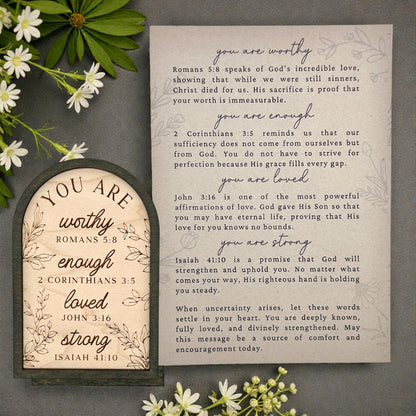 YOU ARE
worthy
ROMANS 5:8
enough
2 CORINTHIANS 3:5
loved
JOHN 3:16
strong
ISAIAH 41:10
you are worthy
Romans 5:8 speaks of God's incredible love,
showing that while we were still sinners,
Christ died for us. His sacrifice is proof that
your worth is immeasurable.
you are enough
2 Corinthians 3:5 reminds us that our
sufficiency does not come from ourselves but
from God. You do not have to strive for
perfection because His grace fills every gap.
you are loved
John 3:16 is one of the most powerful
affirmations of love. God gave His Son so that
you may have eternal life, proving that His
love for you knows no bounds.
you are strong
Isaiah 41:10 is a promise that God will
strengthen and uphold you. No matter what
comes your way, His righteous hand is holding
you steady.
When uncertainty arises, let these words
settle in your heart. You are deeply known,
fully loved, and divinely strengthened. May
this message be a source of comfort and
encouragement today.